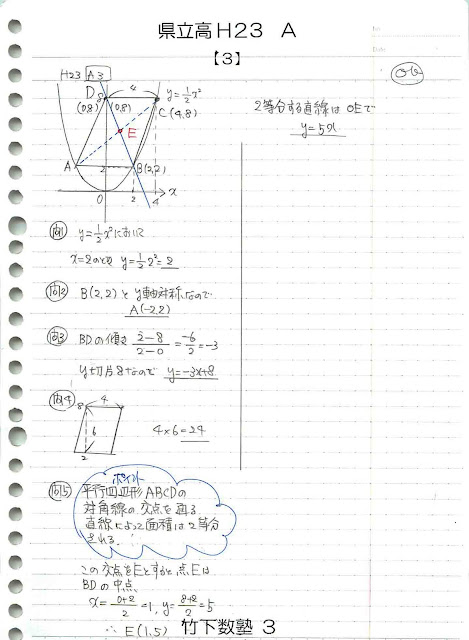 県立高H23 A
【3】
No.
Date
H23 A3
D 8
4
y=1/2x²
(0,8)
(0,8)
C(4,8)
E
A
2
B(2,2)
0
2
4
x
問1 y=1/2x²において
x=2のとき y=1/2x²=2
問2 B(2,2)とy軸対称なので
A(-2,2)
問3 BDの傾き 2-8/2-0=-6/2=-3
y切片8なので y=-3x+8
問4
4
8
6
2
4×6=24
問5 ポイント
平行四辺形ABCDの
対角線の交点を通る
直線によって面積は2等分
される.
この交点をEとすると点Eは
BDの中点
x=0+2/2=1, y=8+2/2=5
∴ E(1,5)
2等分する直線は OEで
y=5x
竹下数塾 3